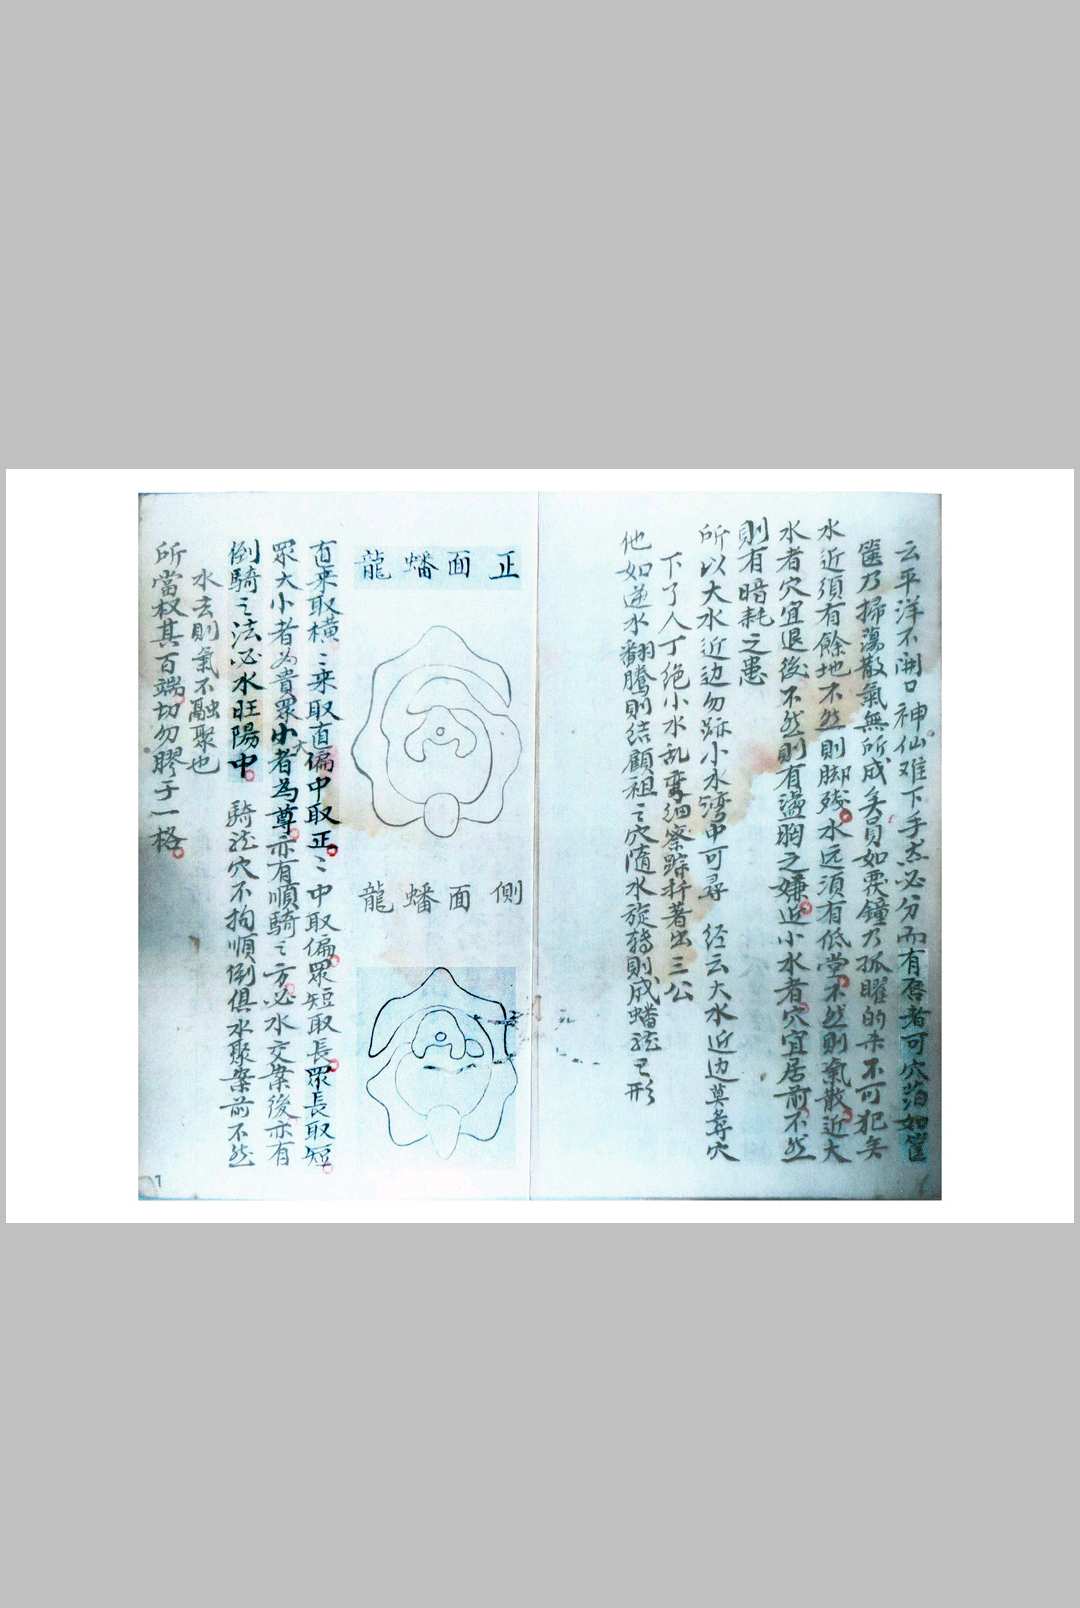 云平洋不開口神仙难下手杰必分而有唇者可穴葫如筐
筐乃掃蕩散氣無所成矣員如覆鐘乃孤曜的朱不可犯矣
水近須有餘地不然則脚殘水远須有低堂不然則氣散近大
水者穴宜退後不然則有盪胸之嫌近小水者穴宜居前不然
則有暗耗之患
所以大水近边勿跡小水湾中可尋 经云大水近边莫尋穴
下了人丁绝小水乱弯细察踪扦著出三公
他如逆水翻騰則结顧祖之穴隨水旋轉則成蟠龙之形
正面蟠龍
側面蟠龍
直来取横ミ来取直偏中取正ミ中取偏眾短取長眾長取短
眾大小者为貴眾小大者為尊亦有順騎之方必水交案後亦有
倒騎之法必水旺陽中 騎龙穴不拘順倒俱水聚案前不然
水去則氣不融聚也
所當权其百端切勿膠于一格
7